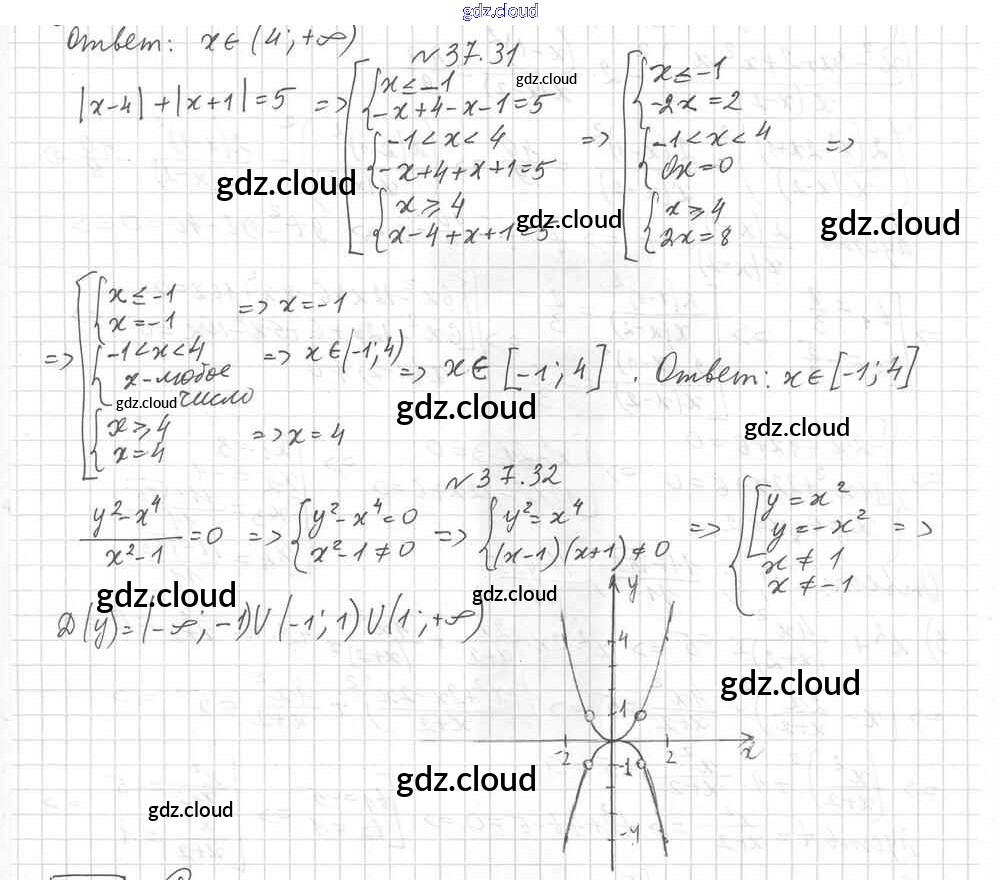 gdz.cloud
Ответ: x∈(4;+∞)
№37.31
|x-4|+|x+1|=5 => [ { x≤-1 ; -x+4-x-1=5 ; { -1<x<4 ; -x+4+x+1=5 ; { x≥4 ; x-4+x+1=5 => [ { x≤-1 ; -2x=2 ; { -1<x<4 ; 0x=0 ; { x≥4 ; 2x=8 =>
gdz.cloud
gdz.cloud
gdz.cloud
gdz.cloud
=> [ { x≤-1 ; x=-1 => x=-1
{ -1<x<4 ; x-любое число => x∈(-1;4)
{ x≥4 ; x=4 => x=4
=> x∈[-1;4]. Ответ: x∈[-1;4]
gdz.cloud
gdz.cloud
gdz.cloud
№37.32
(y²-x⁴)/(x²-1)=0 => { y²-x⁴=0 ; x²-1≠0 => { y²=x⁴ ; (x-1)(x+1)≠0 => { [ y=x² ; y=-x² ; x≠1 ; x≠-1 =>
gdz.cloud
gdz.cloud
D(y)=(-∞;-1)∪(-1;1)∪(1;+∞)
y
4
1
gdz.cloud
-2
2
x
-1
gdz.cloud
gdz.cloud
-4